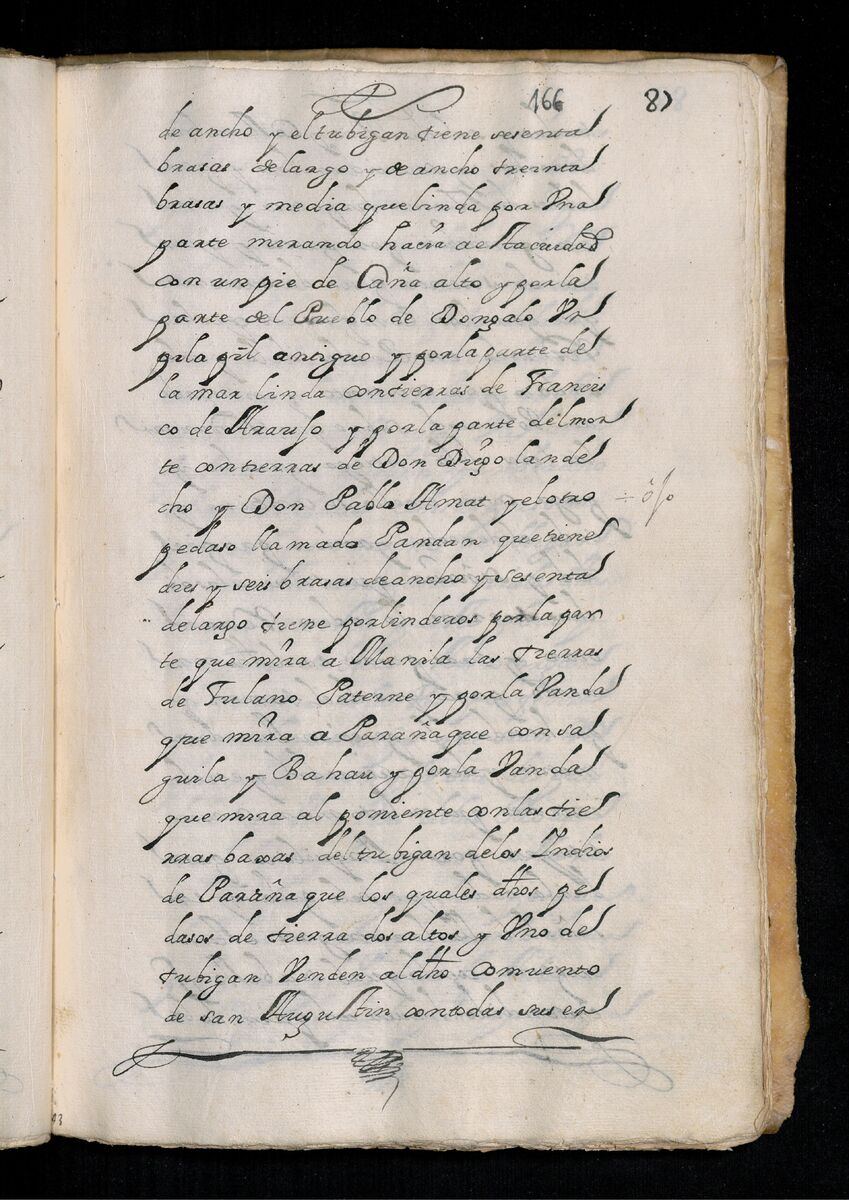 166 87
de ancho y el tubigan tiene sesenta
brasas de largo y de ancho treinta
brasas y media que linda por Vna
parte mirando hacia aesta ciudad
con un pie de Caña alto y por la
parte del Pueblo de Dongalo Vn
pila pil antiguo y por la parte de
la mar linda con tierras de Francis
co de Arauso y por la parte del mon
te con tierras de Don Diego lande
cho y Don Pablo Amat y el otro
pedaso llamado Pandan que tiene
dies y seis brasas de ancho y sesenta
de largo tiene por linderos por la par
te que mira a Manila las tierras
de Fulano Paterne y por la Vanda
que mira a Parañaque con sa
guila y Bahau y por la Vanda
que mira al poniente con las tie
rras baxas del tubigan de los Indios
de Parañaque los quales dhos pe
dasos de tierra dos altos y Vno de
tubigan Venden al dho comuento
de san Augustin con todas sus en